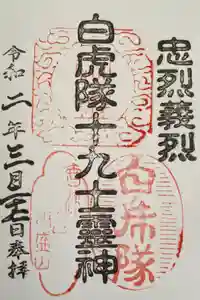 忠烈義烈
白虎隊十九士靈神
令和二年三月七日奉拝
白虎隊